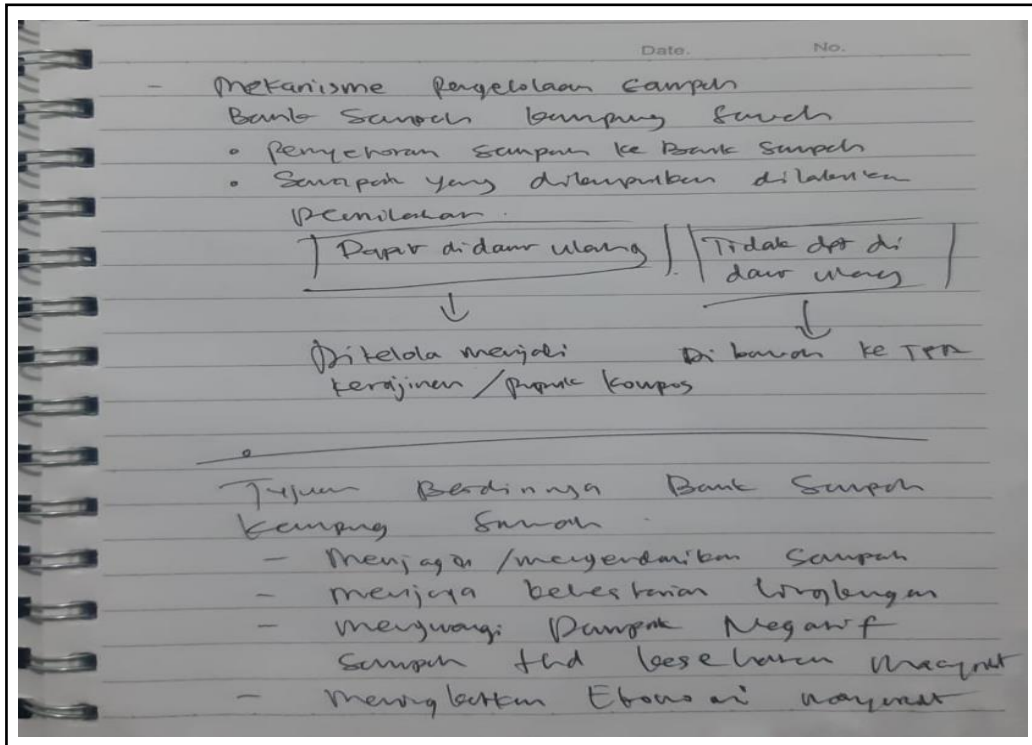 Date. No.
- Mekanisme Pengelolaan Sampah
Bank Sampah kampung Sawah
• Penyetoran sampah ke Bank Sampah
• Sampah yang dikumpulkan dilakukan
pemilahan.
Dapat didaur ulang Tidak dpt di
daur ulang
↓ ↓
Dikelola menjadi Di bawah ke TPA
kerajinan / pupuk kompos
Tujuan Berdirinya Bank Sampah
Kampung Sawah.
- Menjaga / mengendalikan Sampah
- menjaga kelestarian lingkungan
- mengurangi Dampak Negatif
Sampah thd kesehatan
- meningkatkan Ekonomi